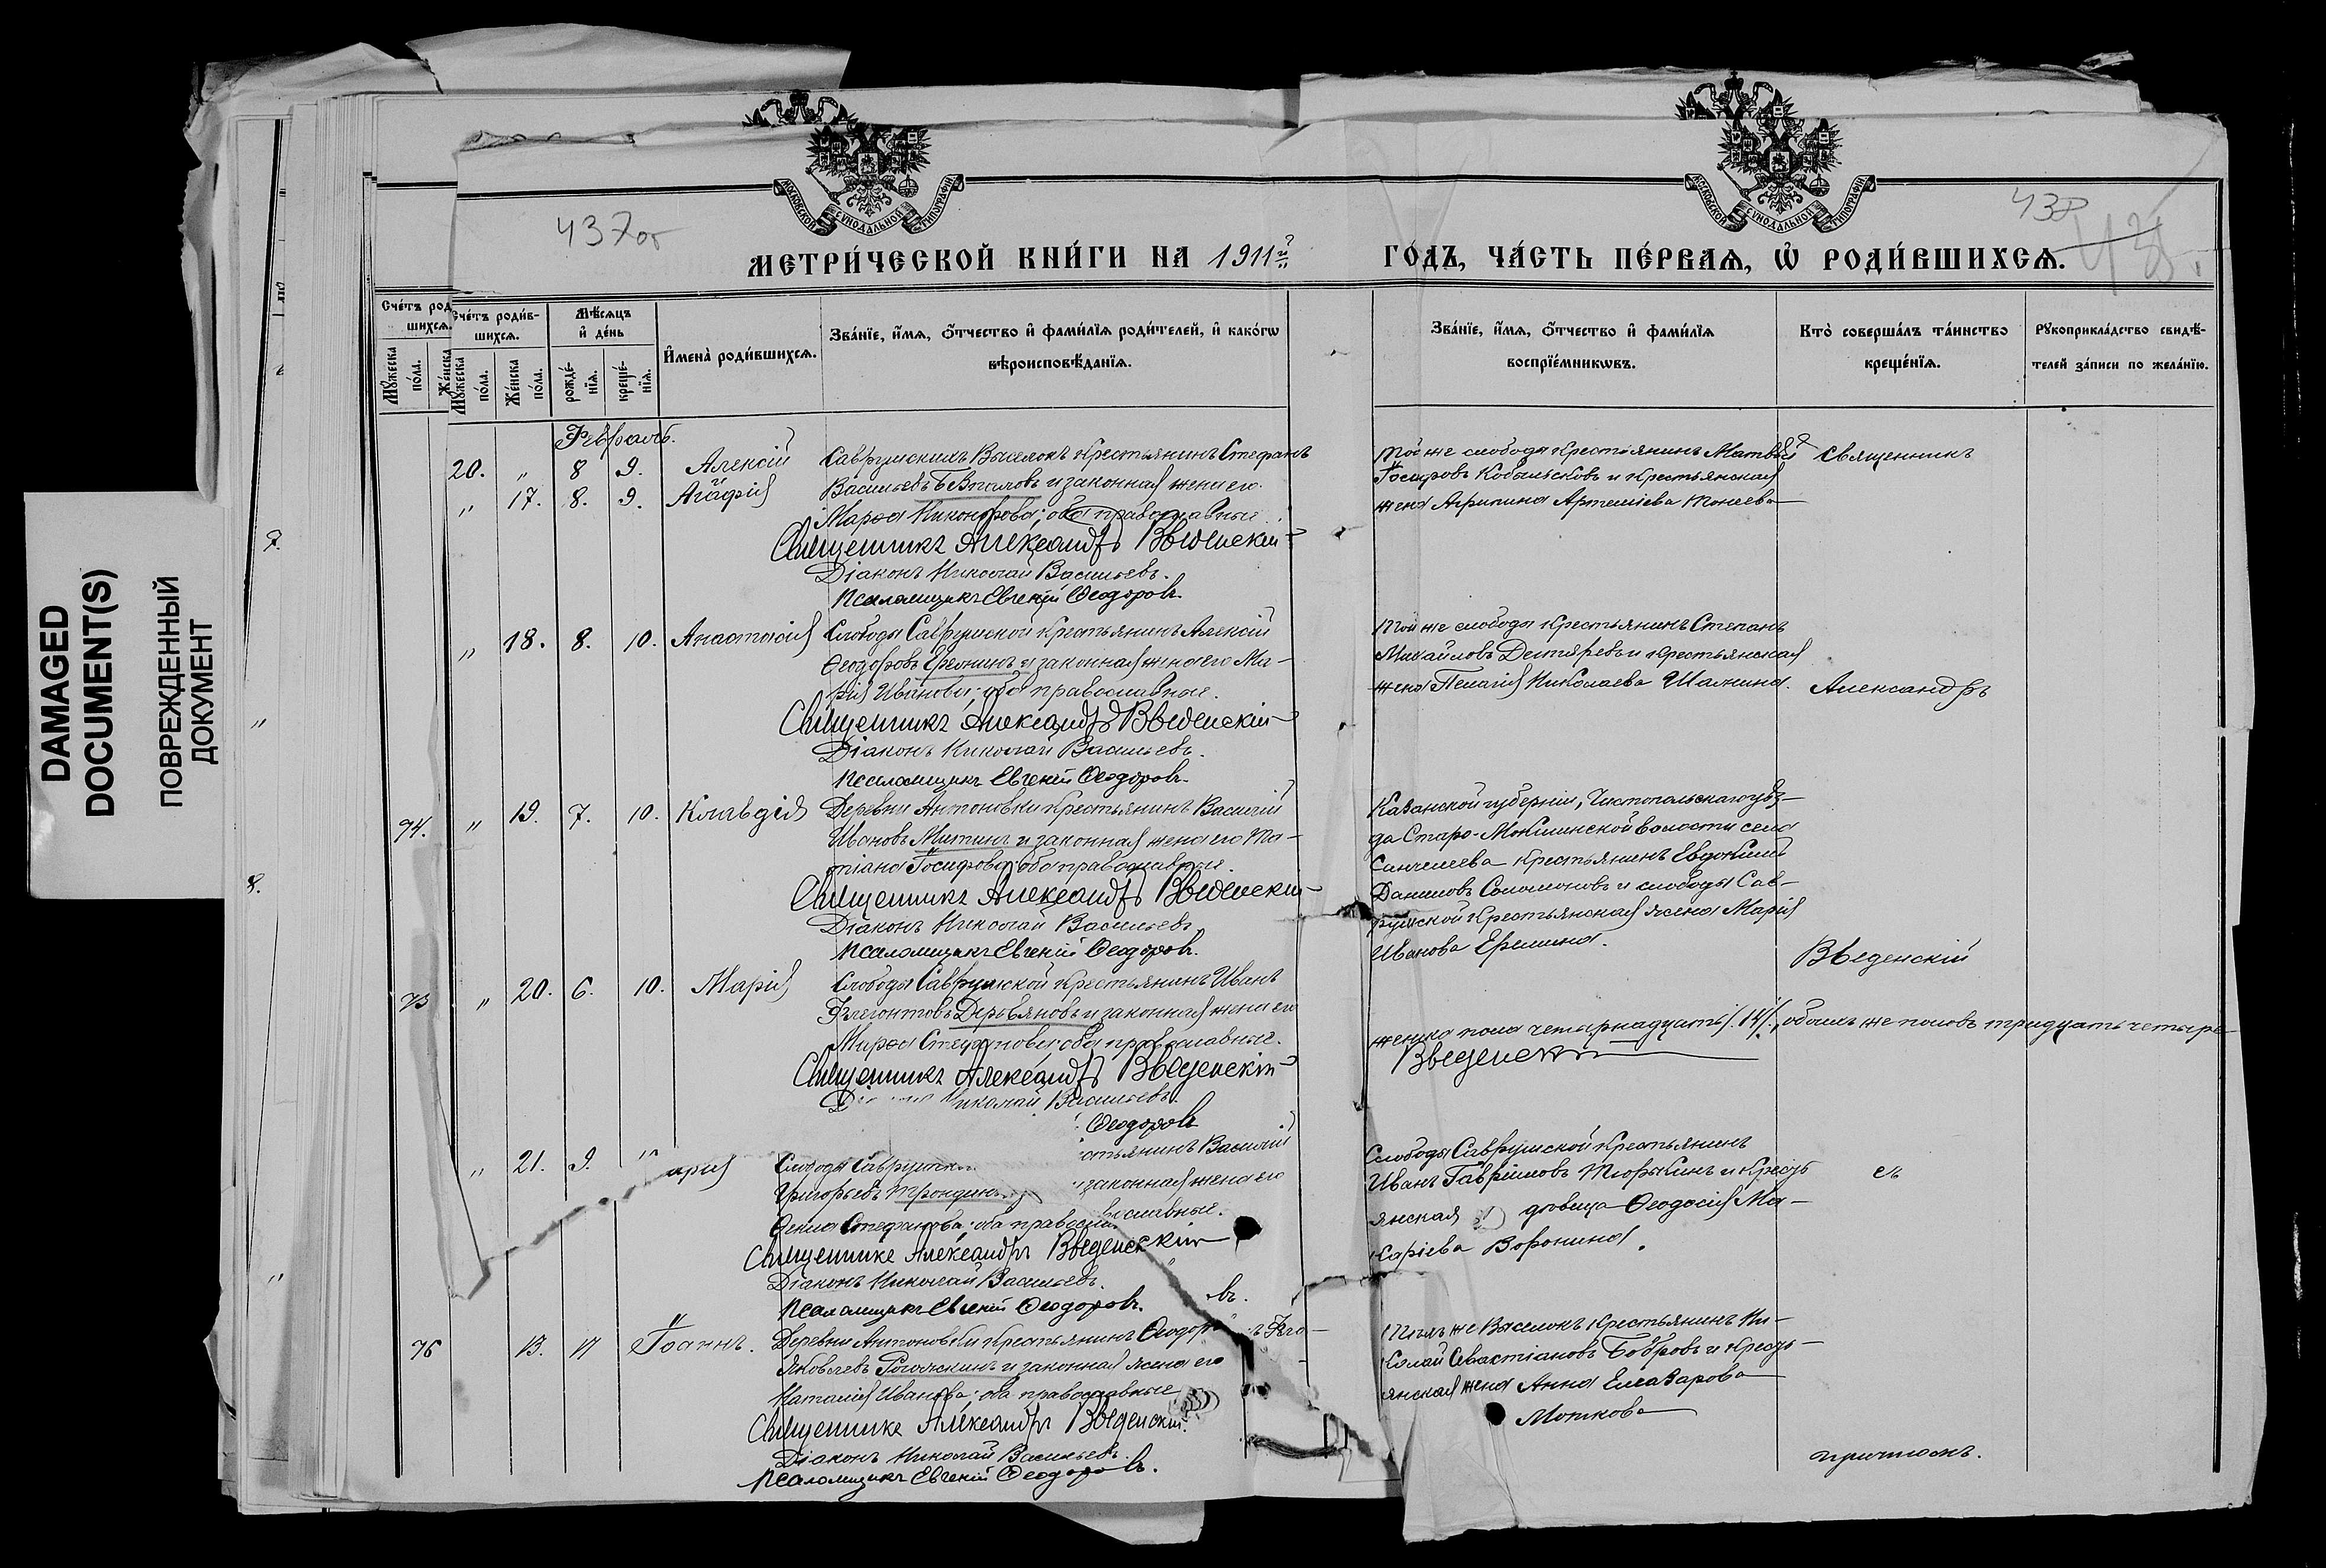 DAMAGED
DOCUMENT(S)
ПОВРЕЖДЕННЫЙ
ДОКУМЕНТ
МОСКОВСКОЙ СѴНОДАЛЬНОЙ ТИПОГРАФІИ
МОСКОВСКОЙ СѴНОДАЛЬНОЙ ТИПОГРАФІИ
437об
438
МЕТРИ́ЧЕСКОЙ КНИ́ГИ НА 1911й
ГО́ДЪ, ЧА́СТЬ ПЕ́РВАѦ, Ѡ҆ РОДИ́ВШИХСѦ.
Сче́тъ род
шихсѧ.
Мꙋ́жеска по́ла.
Же́нска
Сче́тъ роди́в-
шихсѧ.
Мꙋ́жеска по́ла.
Же́нска по́ла.
Мѣ́сѧцъ и҆ де́нь
рожде́-нїѧ.
креще́-нїѧ.
И҆мена̀ роди́вшихсѧ.
Зва́нїе, и҆́мѧ, ѻ҆́тчество и҆ фами́лїѧ роди́телей, и҆ како́гѡ
вѣроисповѣ́данїѧ.
Зва́нїе, и҆́мѧ, ѻ҆́тчество и҆ фами́лїѧ
воспрїе́мникѡвъ.
Кто̀ соверша́лъ та́инство
креще́нїѧ.
Рꙋкоприкла́дство свидѣ́-
телей за́писи по жела́нїю.
Февраль.
20. " 8 9. Алексій
" 17. 8. 9. Агафія
Саврушскихъ Выселокъ крестьянинъ Стефанъ
Васильевъ и законная жена его
Марѳа Никонорова; оба православные.
Священникъ Александръ Введенскій
Діаконъ Николай Васильевъ.
Псаломщикъ Евгеній Ѳеодоровъ.
Той же слободы крестьянинъ Матвѣй
Іосифовъ Кобыльсковъ и крестьянская
жена Агрипина Артеміева Тонеева
Священникъ
" 18. 8. 10. Анастасія
Слободы Саврушской крестьянинъ Алексій
Ѳеодоровъ Ереминъ и законная жена его Ма-
рія Иванова; оба православные.
Священникъ Александръ Введенскій
Діаконъ Николай Васильевъ.
Псаломщикъ Евгеній Ѳеодоровъ.
Той же слободы крестьянинъ Степанъ
Михайловъ Дегтяревъ и крестьянская
жена Пелагія Николаева Шалнина.
Александръ
74. " 19. 7. 10. Клавдія
Деревни Антоновки крестьянинъ Василій
Ивановъ Митинъ и законная жена его Та-
тіана Іосифова; оба православные.
Священникъ Александръ Введенскій
Діаконъ Николай Васильевъ.
Псаломщикъ Евгеній Ѳеодоровъ.
Казанской губерніи, Чистопольскаго уѣз-
да Старо-Мокшинской волости села
Санчелеева крестьянинъ Евдокимъ
Даниловъ Соломоновъ и слободы Сав-
рушской крестьянская жена Марія
Иванова Еремина.
Введенскій
75 " 20. 6. 10. Марія
Слободы Саврушской крестьянинъ Иванъ
Флегонтовъ Деревяновъ и законная жена его
Марѳа Стефанова; оба православные.
Священникъ Александръ Введенскій
Николай Васильевъ.
Ѳеодоровъ
женска пола четырнадцать /14/, обоихъ же половъ тридцать четыре
Введенскій
" 21. 9. " арія
Слободы Саврушской
стьянинъ Василій
Григорьевъ Трондинъ и
законная жена его
Стефанова; оба правосл
вославные.
Священникъ Александръ Введенскій
Діаконъ Николай Васильевъ.
Псаломщикъ Евгеній Ѳеодоровъ.
въ.
Слободы Саврушской крестьянинъ
Иванъ Гавріиловъ Тюрькинъ и кресть
янская вдовица Ѳеодосія Ма-
каріева Воронина.
съ
76 13. 17 Іоаннъ.
Деревни Антоновки крестьянинъ Ѳеодоръ
Яковлевъ Рогожкинъ и законная жена его
Наталія Иванова; оба православные
Священникъ Александръ Введенскій.
Діаконъ Николай Васильевъ.
Псаломщикъ Евгеній Ѳеодоровъ.
Тѣхъ же Выселокъ крестьянинъ Ни-
колай Севастіановъ Бобровъ и кресть-
янская жена Анна Елеазарова
Моткова
причтомъ.
7.
"
8.
"